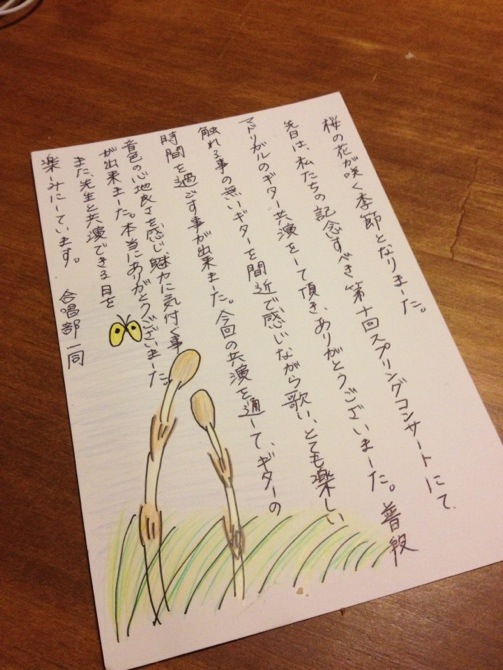 桜の花が咲く季節となりました。
先日は、私たちの記念すべき第十回スプリングコンサートにて、
マドリガルのギター共演をして頂き、ありがとうございました。普段
触れる事の無いギターを間近で感じながら歌い、とても楽しい
時間を過ごす事が出来ました。今回の共演を通して、ギターの
音色の心地良さを感じ魅力に気付く事
が出来ました。本当にありがとうございました。
また、先生と共演できる日を
楽しみにしています。 合唱部一同